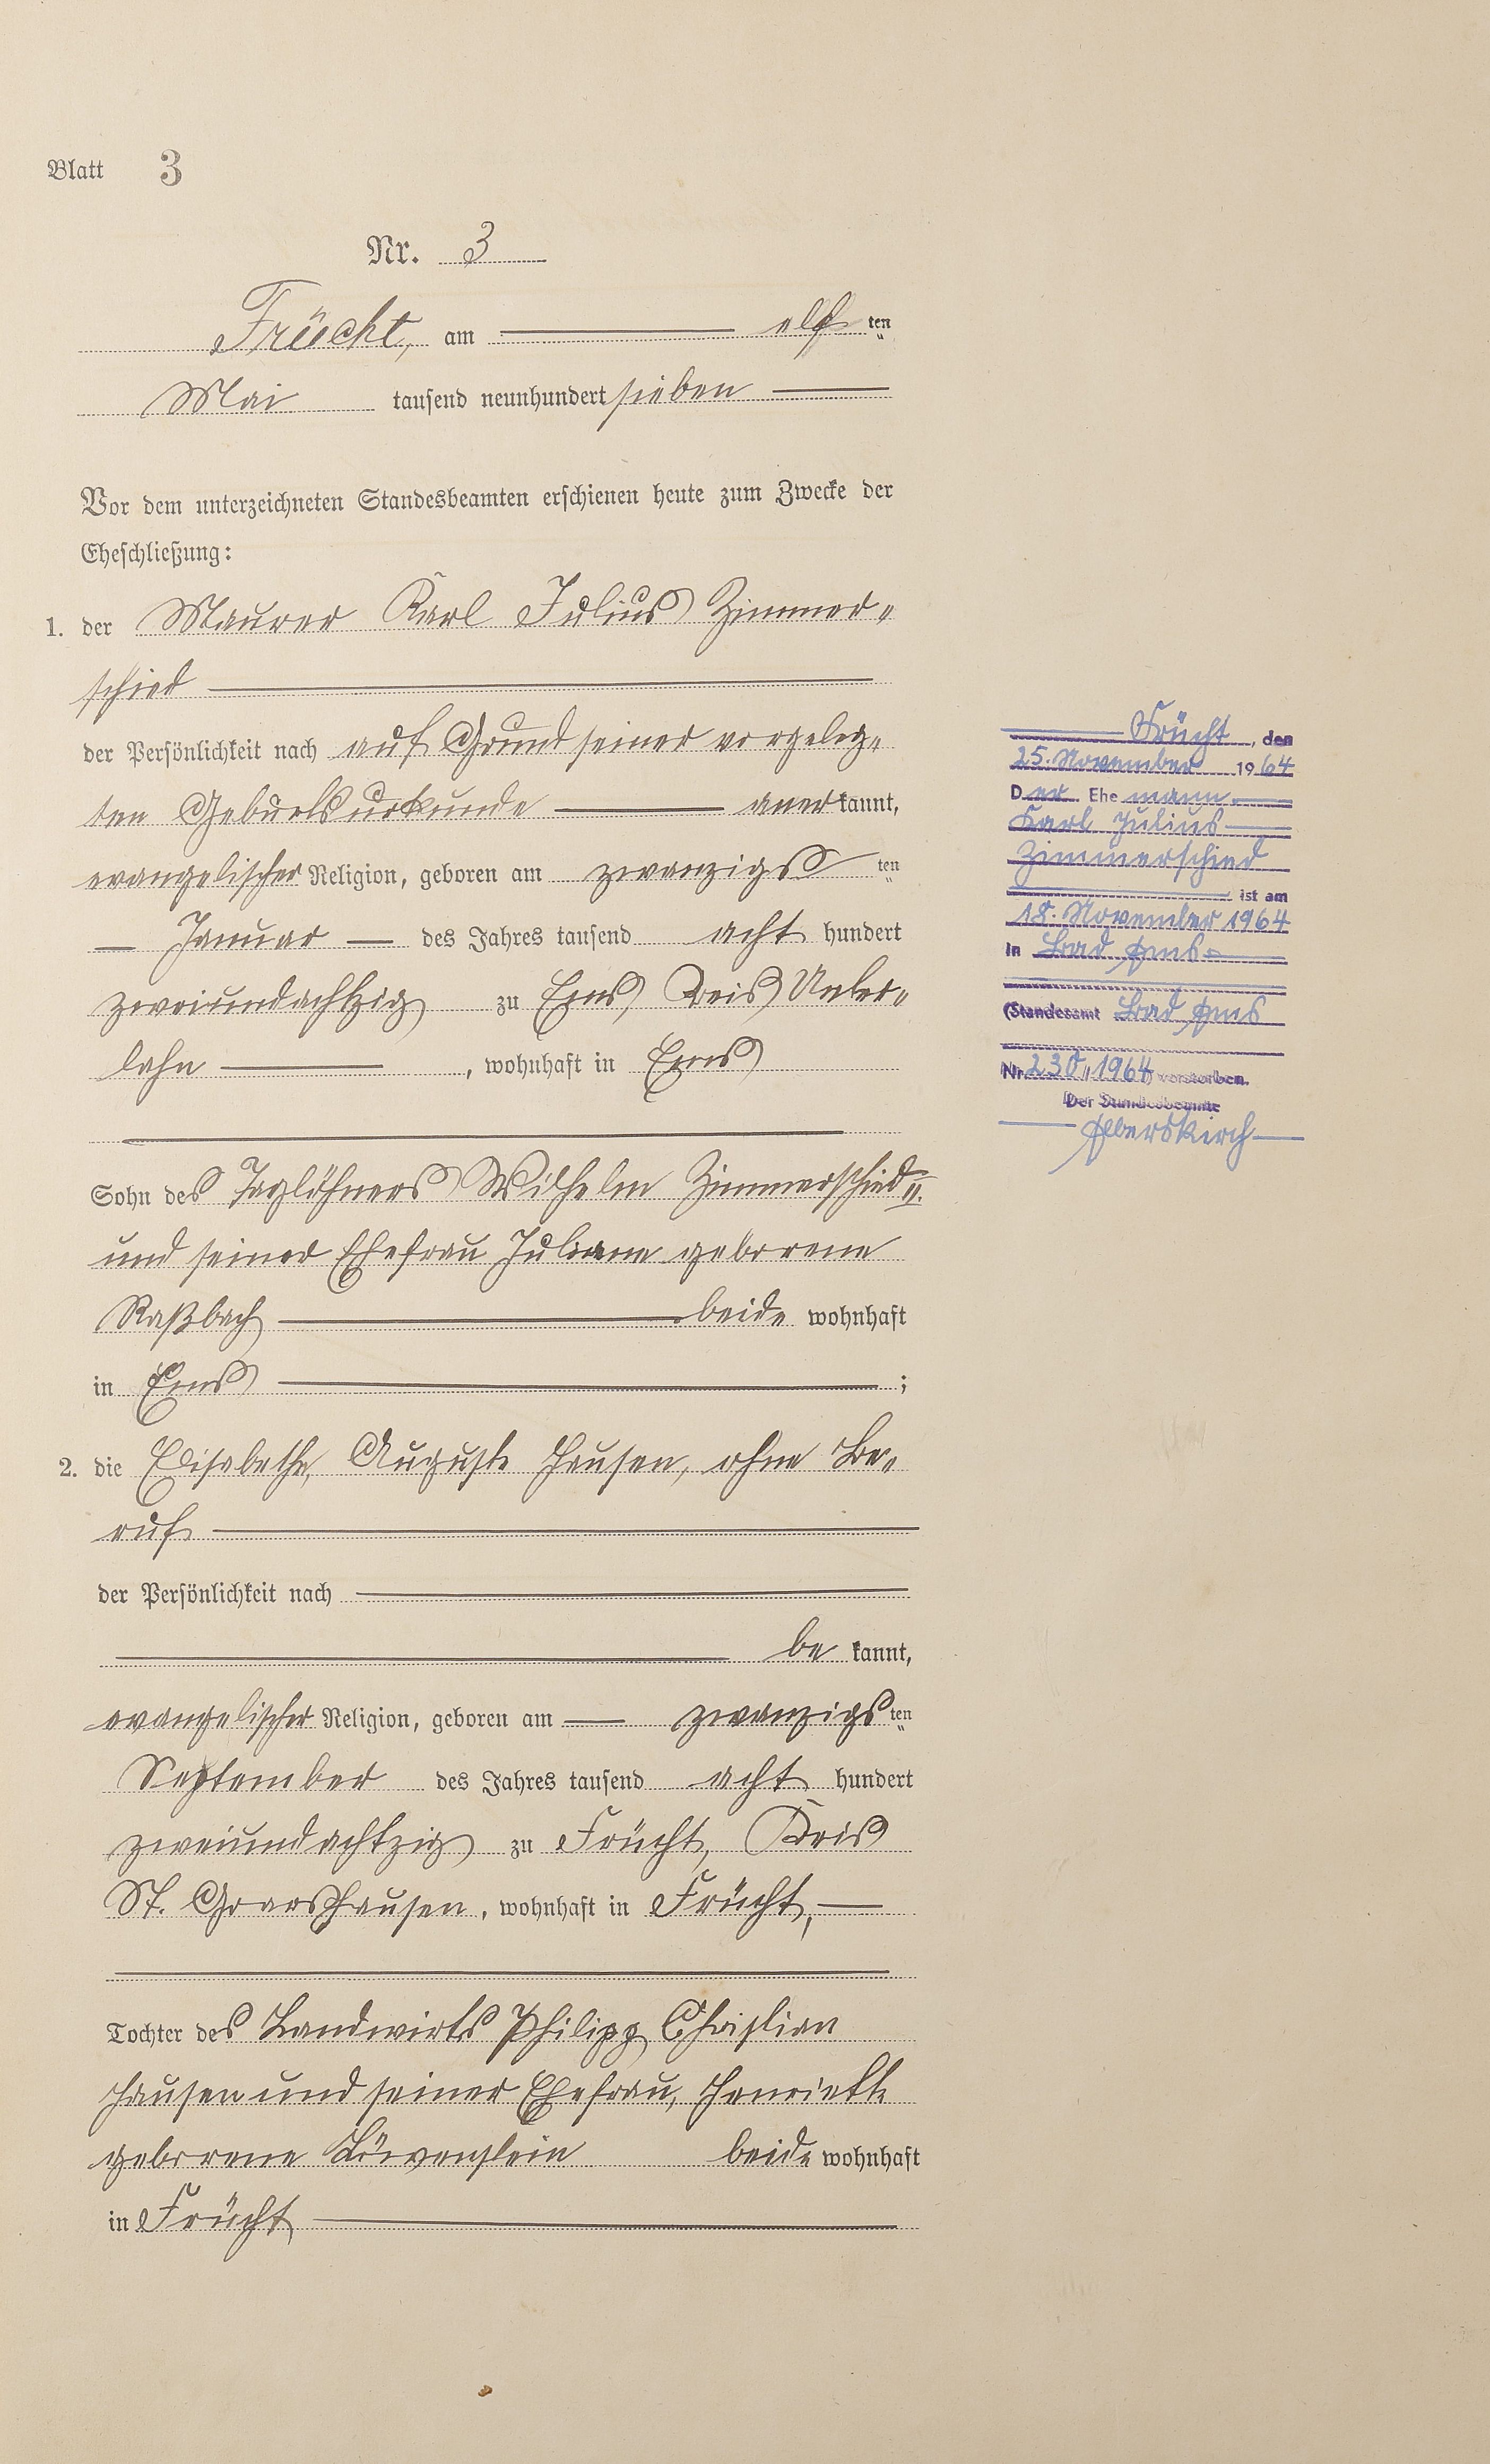 Blatt 3
Nr. 3
Frücht, am elf ten
Mai tausend neunhundert sieben
Vor dem unterzeichneten Standesbeamten erschienen heute zum Zwecke der
Eheschließung:
1. der Maurer Karl Julius Zimmer-
schied
der Persönlichkeit nach auf Grund seiner vorgeleg-
ten Geburtsurkunde anerkannt,
evangelischer Religion, geboren am zwanzigs ten
Januar des Jahres tausend acht hundert
zweiundachtzig zu Ems Kreis Unter-
lahn, wohnhaft in Ems
Sohn des Taglöhners Wilhelm Zimmerschied II.
und seiner Ehefrau Juliane geborene
Raßbach beide wohnhaft
in Ems ;
2. die Elisabethe, Auguste Hausen, ohne Be-
ruf
der Persönlichkeit nach
be kannt,
evangelischer Religion, geboren am zwanzigs ten
September des Jahres tausend acht hundert
zweiundachtzig zu Frücht, Kreis
St. Goarshausen, wohnhaft in Frücht,
Tochter des Landwirts Philipp Christian
Hausen und seiner Ehefrau, Henriette
geborene Löwenstein beide wohnhaft
in Frücht
Frücht, den
25. November 1964
Der Ehemann
Karl Julius
Zimmerschied
ist am
18. November 1964
in Bad Ems
(Standesamt Bad Ems
Nr. 230, 1964) verstorben.
Der Standesbeamte